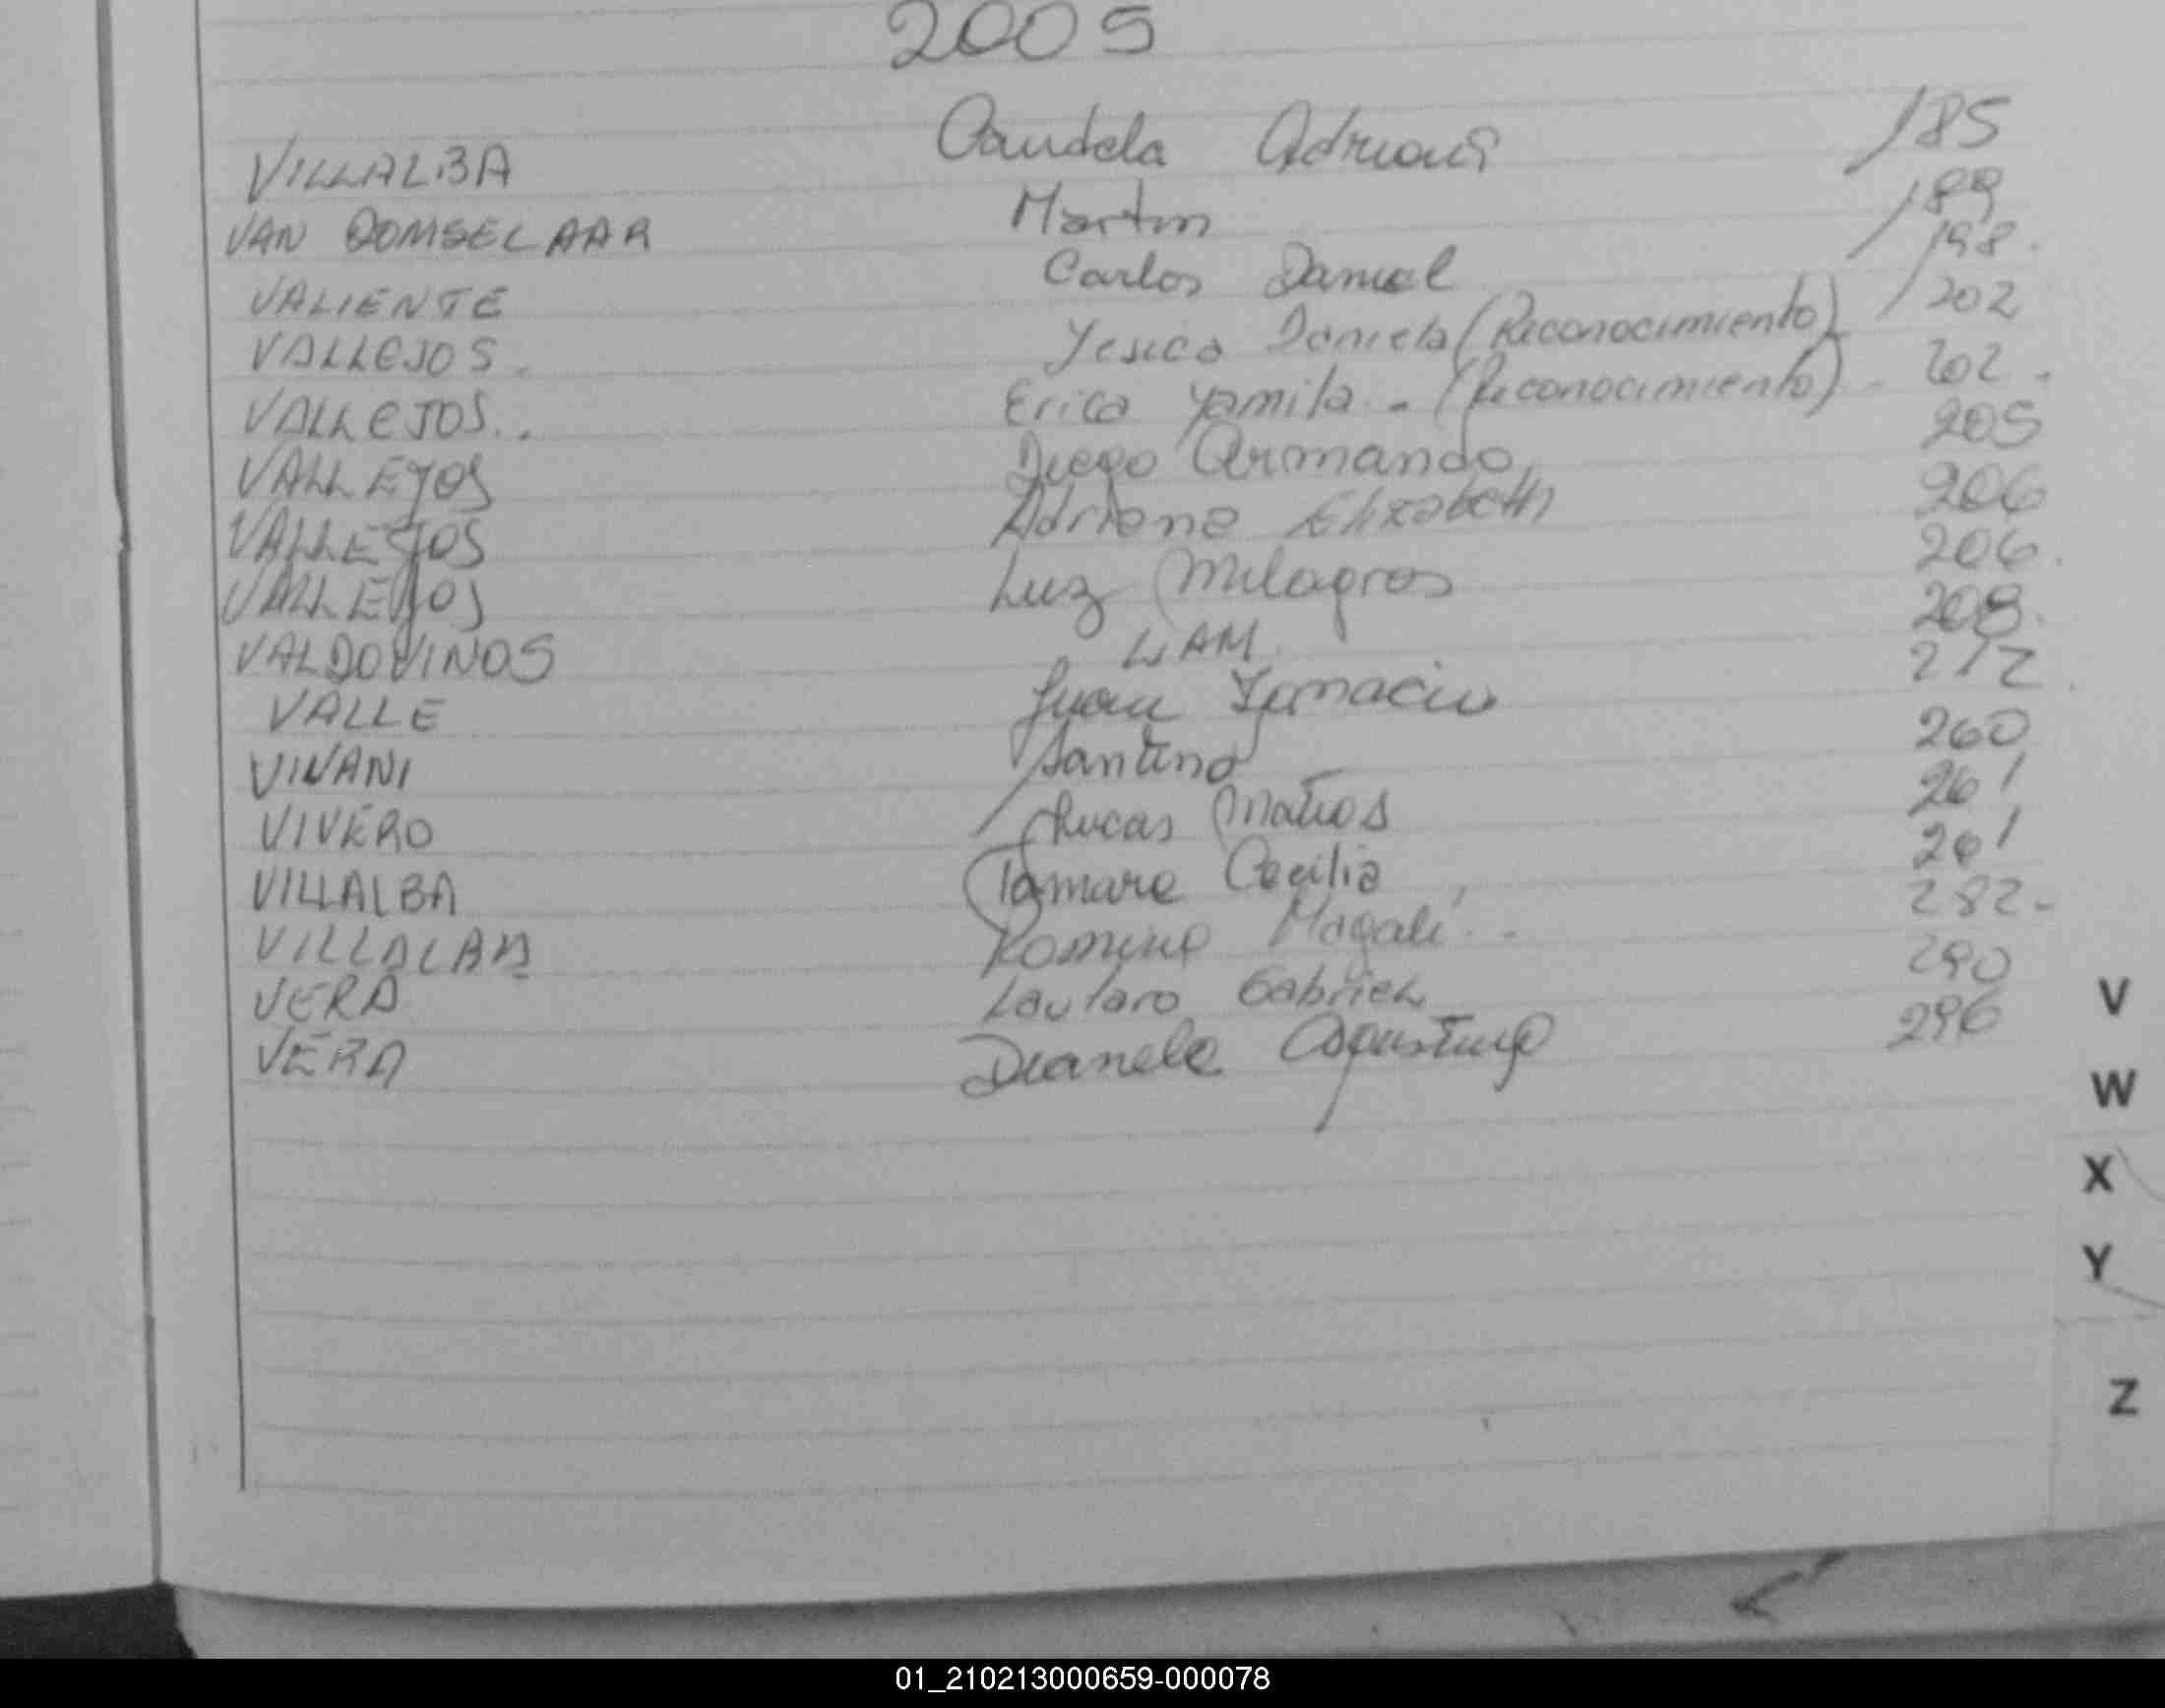 2005
VILLALBA Candela Adriana 185
VAN DOMSELAAR Martin 189
VALIENTE Carlos Daniel 198.
VALLEJOS. Yesica Daniela (Reconocimiento) 202
VALLEJOS.. Erica Yamila - (Reconocimiento) - 202 -
VALLEJOS Diego Armando 205
VALLEJOS Adriana Elizabeth 206
VALLEJOS Luz Milagros 206.
VALDOVINOS 208.
VALLE Juan Ignacio 212.
VINANI Santino 260
VIVERO Lucas Matias 261
VILLALBA Tamara Cecilia 261
VILLALBA Romina Magali.. 282-
VERA Lautaro Gabriel 290
VERA Dianela Agustina 296
V
W
X
Y
Z
01_210213000659-000078